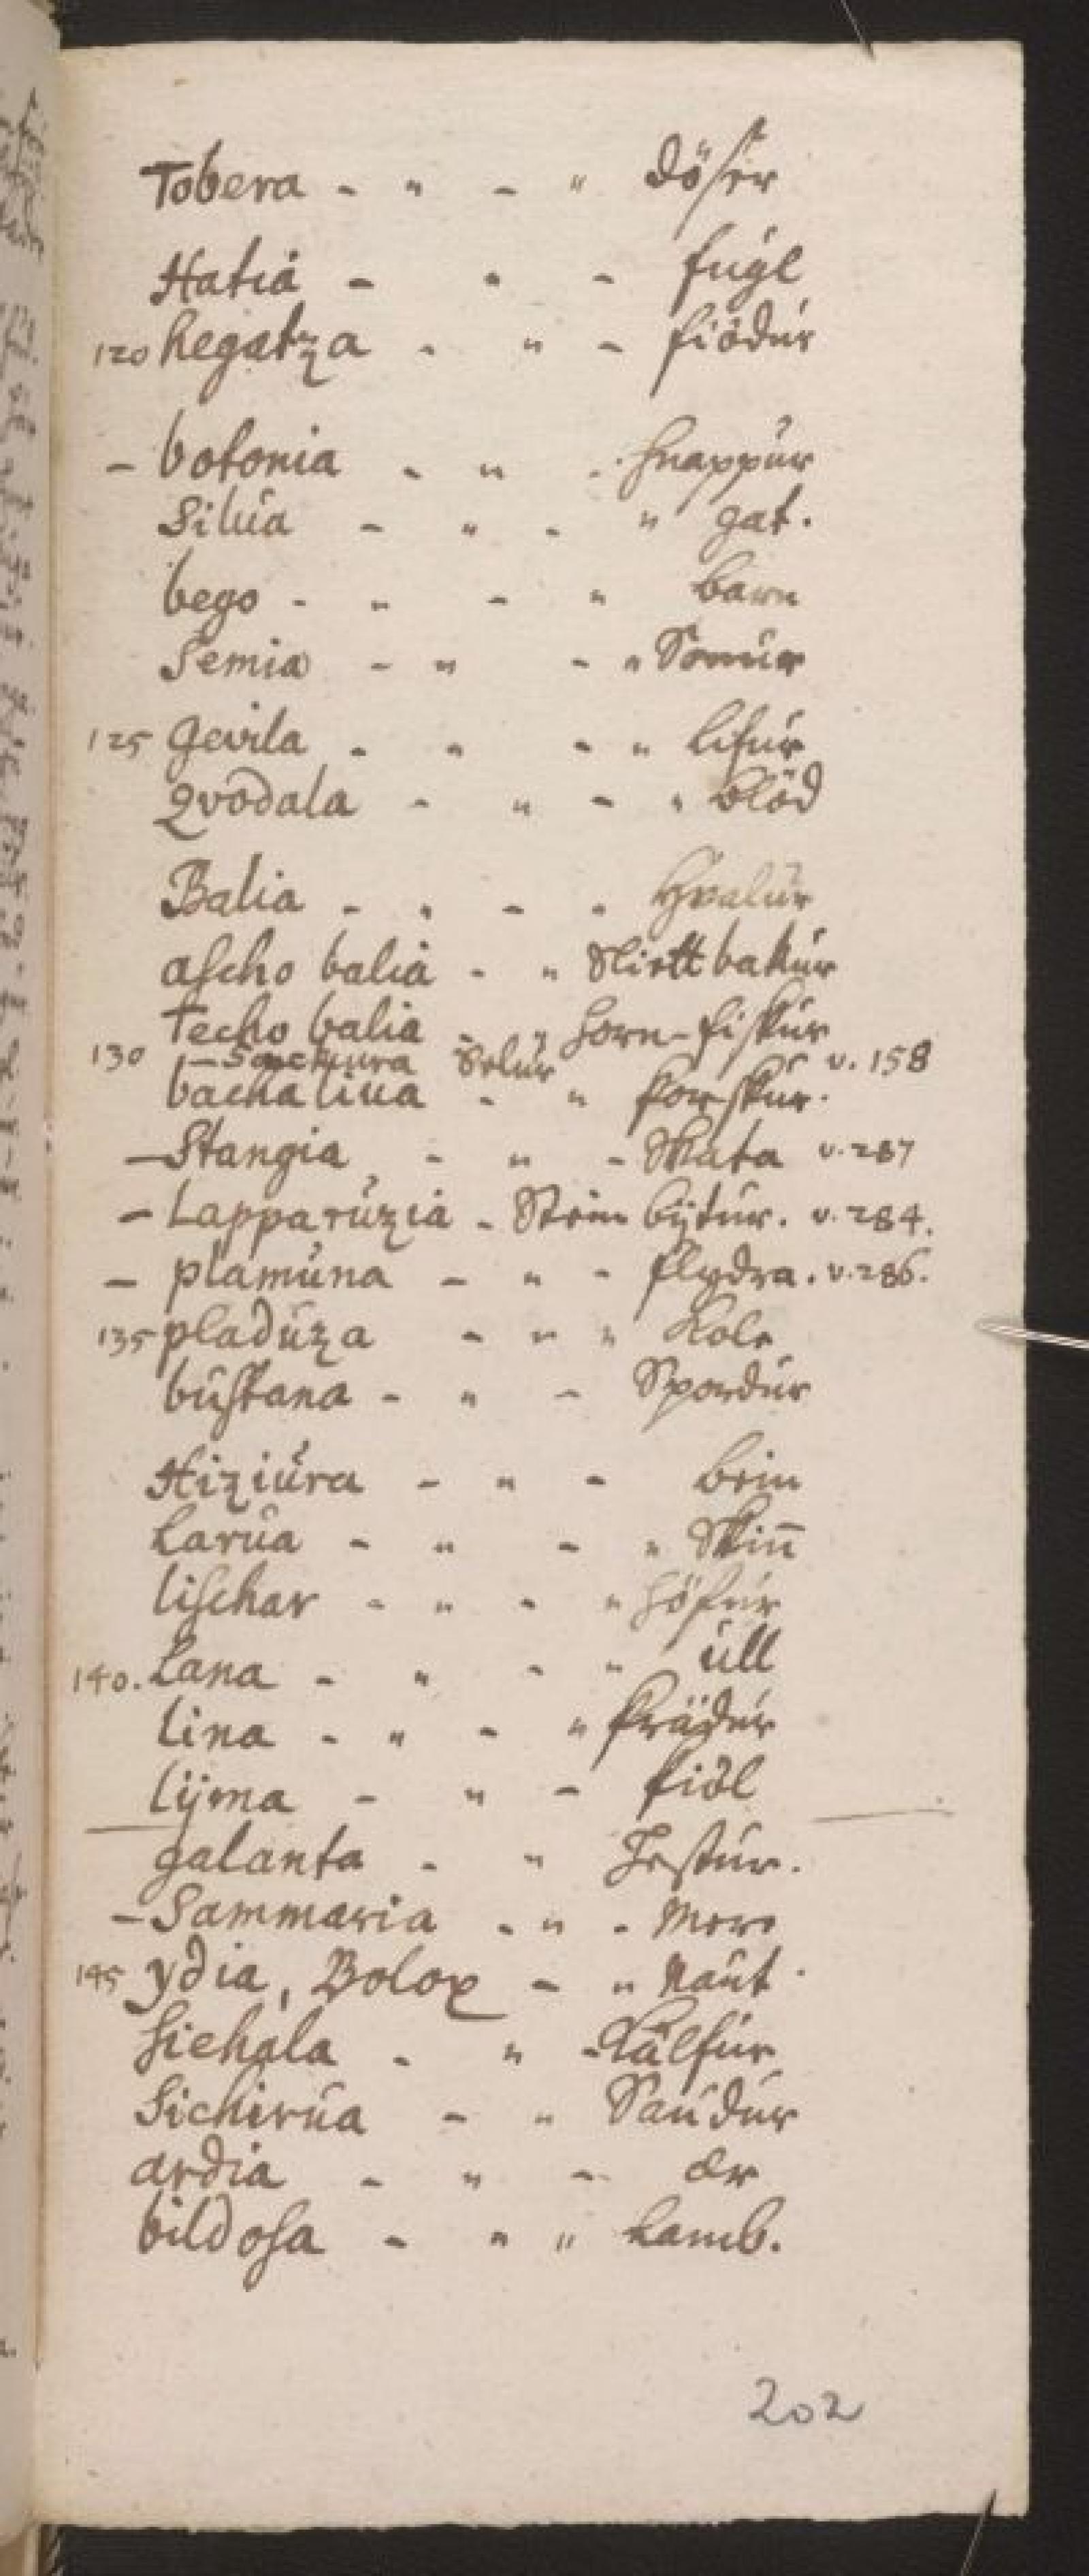 Tobera - " - " döser
Hatia - " - fúgl
120 hegatza - " - fiödúr
- botonia - " - hnappúr
Silúa - " - " gat.
bego - " - " barn
Semia - " - " Sonúr
125 gevila - " - " lifúr
Qvodala - " - " blöd
Balia - " - " Hvalúr
ascho balia - " Sliettbakúr
Techo balia - " horn-fiskúr
130 - Sapekúra Selúr v. 158
bachaliúa - " þorskúr.
- Stangia - " - Skata v. 287
- Lapparúzia - Stein bÿtúr. v. 284.
- plamúna - " - flydra. v. 286.
135 pladúza - " " Kole
bústana - " - Spordúr
Hiziúra - " - bein
Larúa - " - " Skin̄
lischar - " - " höfúr
140. Lana - " - " úll
lina - " - " þrädúr
lijma - " - fiöl
galanta - " hestúr.
- Sammaria - " - Mere
145 ydia, Bolox - " Naút.
Sichala - " - Kälfúr
Sichirúa - " Saúdúr
ardia - " - ær
bildosa - " " Lamb.
202